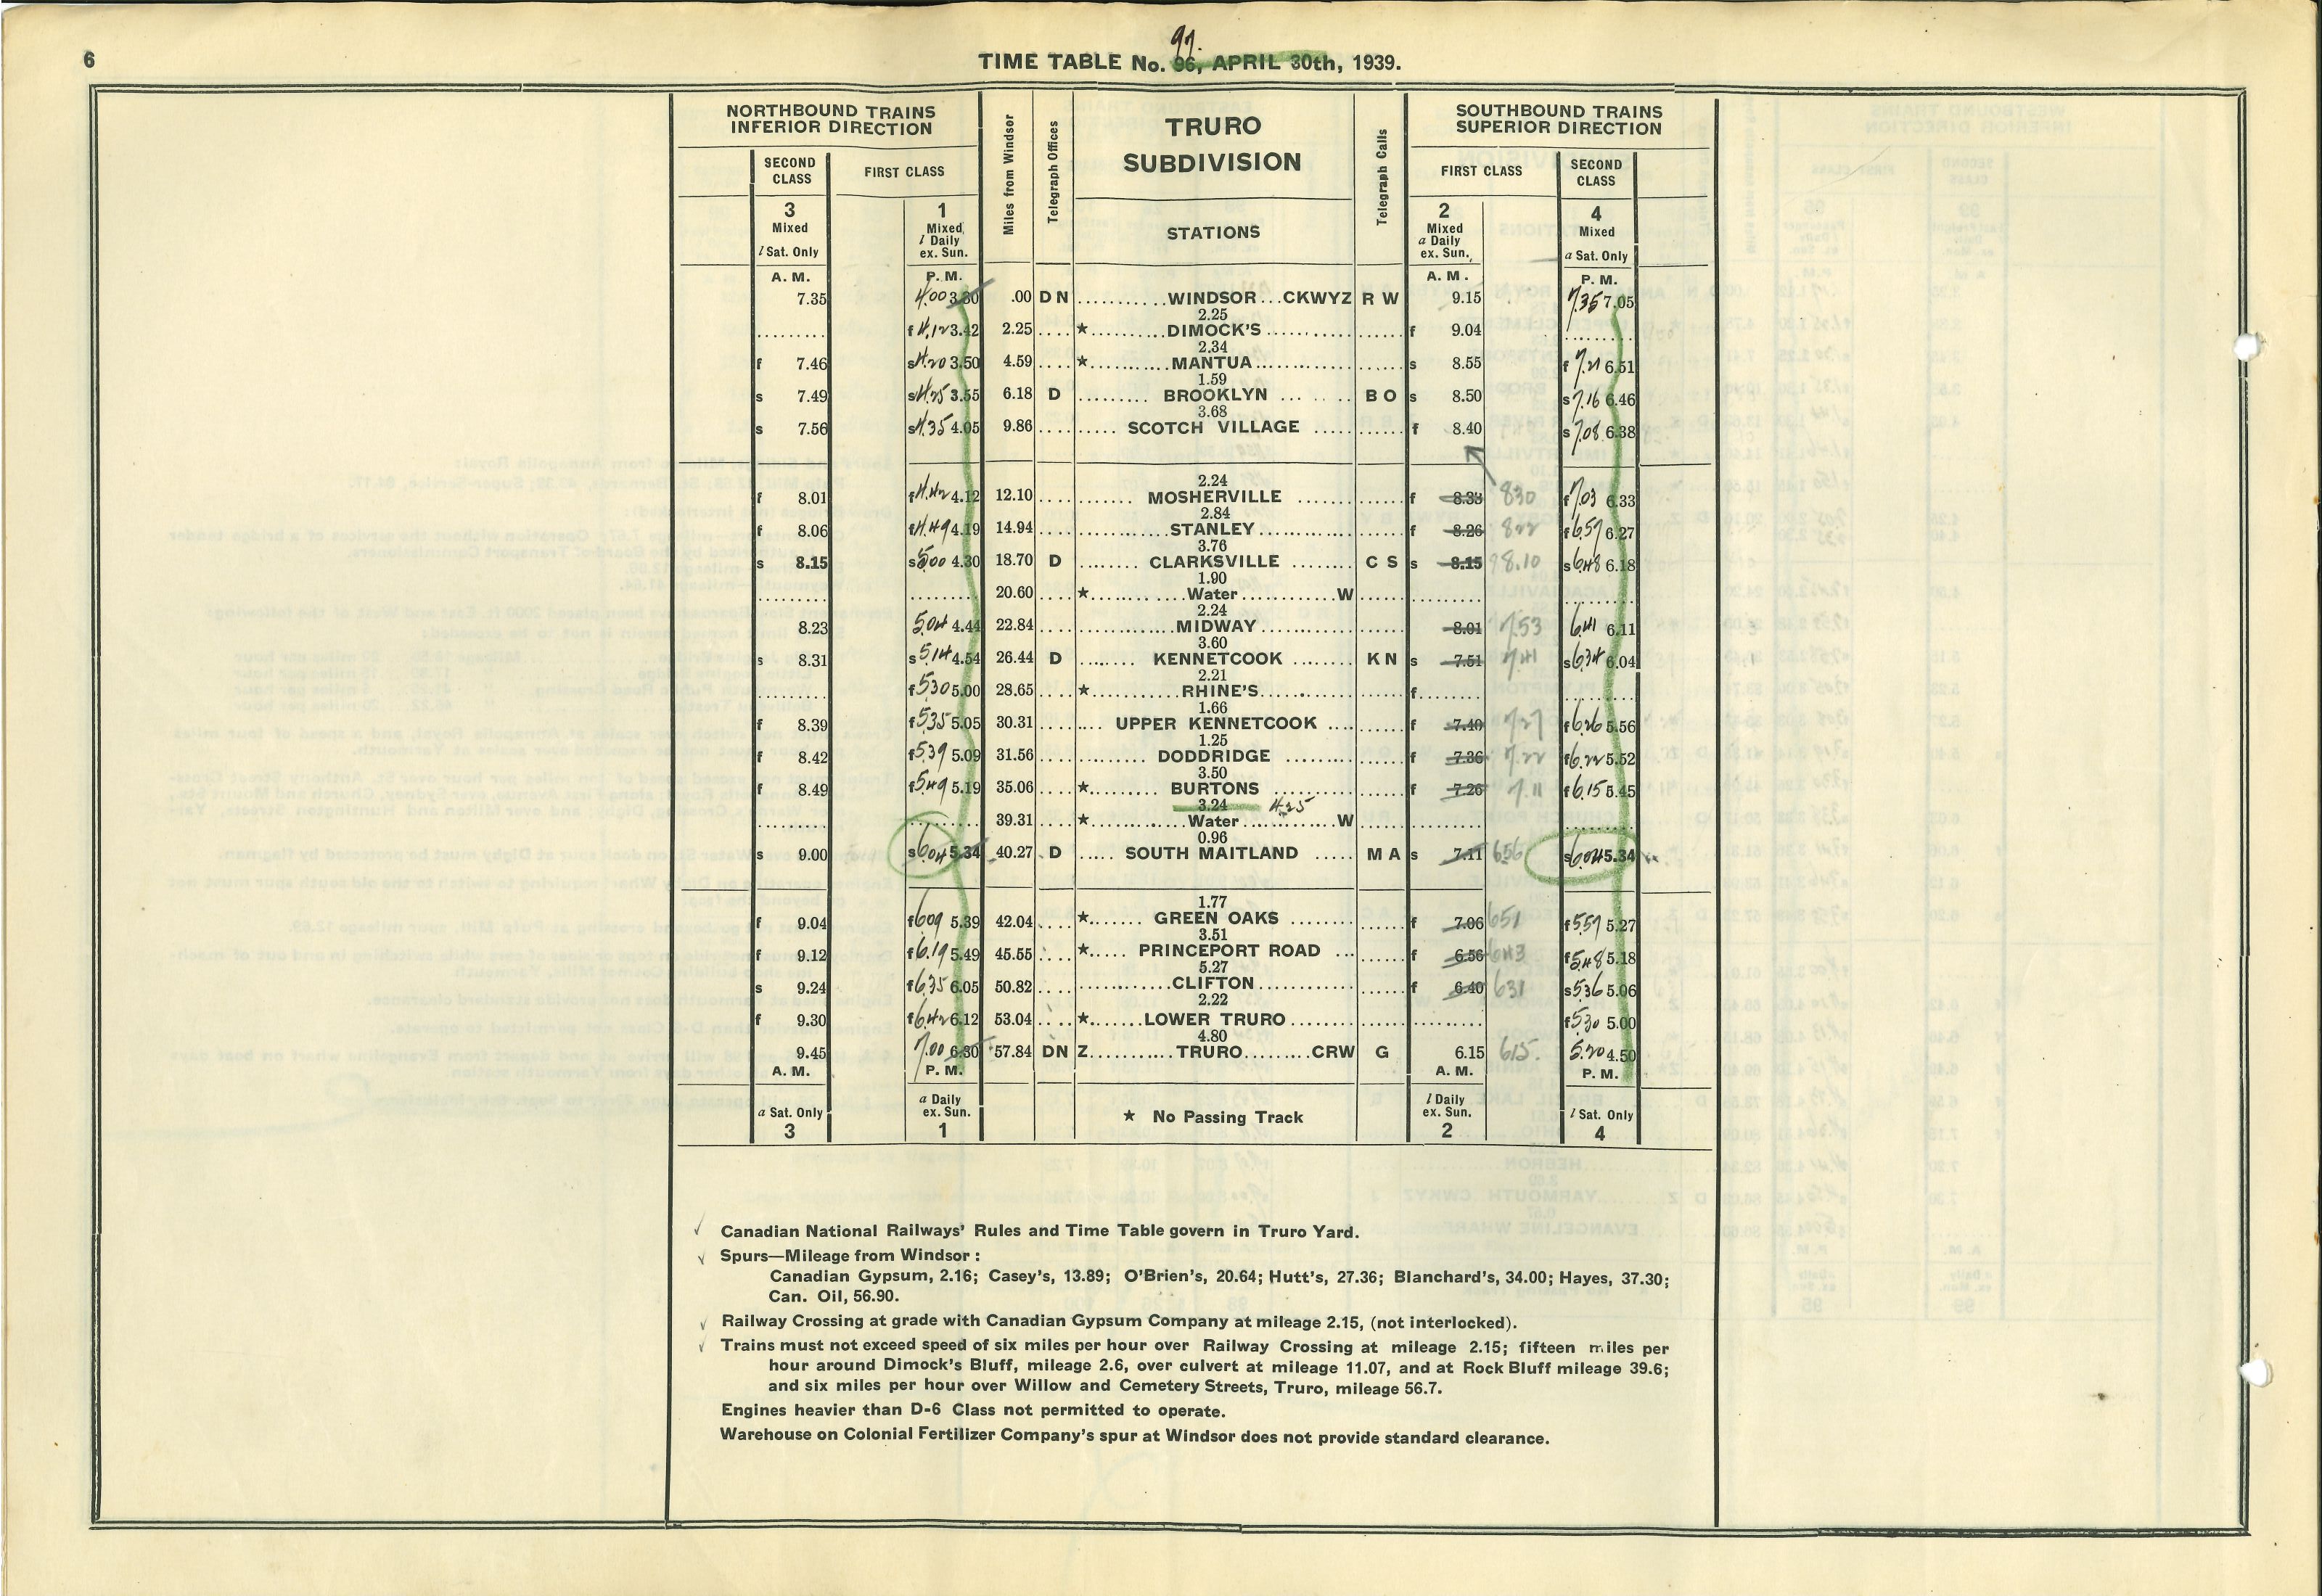 97.
6 TIME TABLE No. 96, APRIL 30th, 1939.
NORTHBOUND TRAINS
INFERIOR DIRECTION
SECOND CLASS
FIRST CLASS
Miles from Windsor
Telegraph Offices
TRURO
SUBDIVISION
STATIONS
Telegraph Calls
SOUTHBOUND TRAINS
SUPERIOR DIRECTION
FIRST CLASS
SECOND CLASS
3 Mixed l Sat. Only
1 Mixed l Daily ex. Sun.
2 Mixed a Daily ex. Sun.
4 Mixed a Sat. Only
A. M. P. M. A. M. P. M.
7.35 4.00 3.30 .00 D N ...........WINDSOR...CKWYZ R W 9.15 7.35 7.05
2.25
......... f 4.12 3.42 2.25 .... ★ .........DIMOCK'S............ f 9.04 .........
2.34
f 7.46 s 4.20 3.50 4.59 .... ★ ..........MANTUA............. s 8.55 f 7.21 6.51
1.59
s 7.49 s 4.25 3.55 6.18 D ......... BROOKLYN ......... B O s 8.50 s 7.16 6.46
3.68
s 7.56 s 4.35 4.05 9.86 ......... SCOTCH VILLAGE ..... f 8.40 s 7.08 6.38
2.24
f 8.01 f 4.42 4.12 12.10 .... ....... MOSHERVILLE ....... f 8.33 830 f 7.03 6.33
2.84
f 8.06 f 4.49 4.19 14.94 .... ......... STANLEY ............ f 8.26 822 f 6.57 6.27
3.76
s 8.15 s 5.00 4.30 18.70 D ........ CLARKSVILLE ......... C S s 8.15 8.10 s 6.48 6.18
1.90
......... ......... 20.60 .... ★ ...........Water.............W ......... .........
2.24
8.23 5.04 4.44 22.84 .... ...........MIDWAY............. 8.01 7.53 6.41 6.11
3.60
s 8.31 s 5.14 4.54 26.44 D ....... KENNETCOOK ........ K N s 7.51 7.41 s 6.34 6.04
2.21
......... f 5.30 5.00 28.65 .... ★ ..........RHINE'S............ f......... .........
1.66
f 8.39 f 5.35 5.05 30.31 .... .... UPPER KENNETCOOK .... f 7.40 7.27 f 6.26 5.56
1.25
f 8.42 f 5.39 5.09 31.56 .... ....... DODDRIDGE ........ f 7.36 7.22 f 6.22 5.52
3.50
f 8.49 f 5.49 5.19 35.06 .... ★ ......... BURTONS .......... f 7.26 7.11 f 6.15 5.45
3.24 4.25
......... ......... 39.31 .... ★ ...........Water.............W ......... .........
0.96
s 9.00 s 6.04 5.34 40.27 D ..... SOUTH MAITLAND ..... M A s 7.11 656 s 6.04 5.34
1.77
f 9.04 f 609 5.39 42.04 .... ★....... GREEN OAKS ........ f 7.06 651 f 5.57 5.27
3.51
f 9.12 f 6.19 5.49 45.55 .... ★..... PRINCEPORT ROAD ... f 6.56 643 f 5.48 5.18
5.27
s 9.24 f 6.35 6.05 50.82 .... ...........CLIFTON............. f 6.40 631 s 5.36 5.06
2.22
f 9.30 f 6.42 6.12 53.04 .... ★.......LOWER TRURO........ ......... f 5.30 5.00
4.80
9.45 7.00 6.30 57.84 DN Z...........TRURO.........CRW G 6.15 615. 5.20 4.50
A. M. P. M. A. M. P. M.
a Sat. Only 3
a Daily ex. Sun. 1
★ No Passing Track
l Daily ex. Sun. 2
l Sat. Only 4
Canadian National Railways' Rules and Time Table govern in Truro Yard.
Spurs—Mileage from Windsor :
Canadian Gypsum, 2.16; Casey's, 13.89; O'Brien's, 20.64; Hutt's, 27.36; Blanchard's, 34.00; Hayes, 37.30;
Can. Oil, 56.90.
Railway Crossing at grade with Canadian Gypsum Company at mileage 2.15, (not interlocked).
Trains must not exceed speed of six miles per hour over Railway Crossing at mileage 2.15; fifteen miles per
hour around Dimock's Bluff, mileage 2.6, over culvert at mileage 11.07, and at Rock Bluff mileage 39.6;
and six miles per hour over Willow and Cemetery Streets, Truro, mileage 56.7.
Engines heavier than D-6 Class not permitted to operate.
Warehouse on Colonial Fertilizer Company's spur at Windsor does not provide standard clearance.